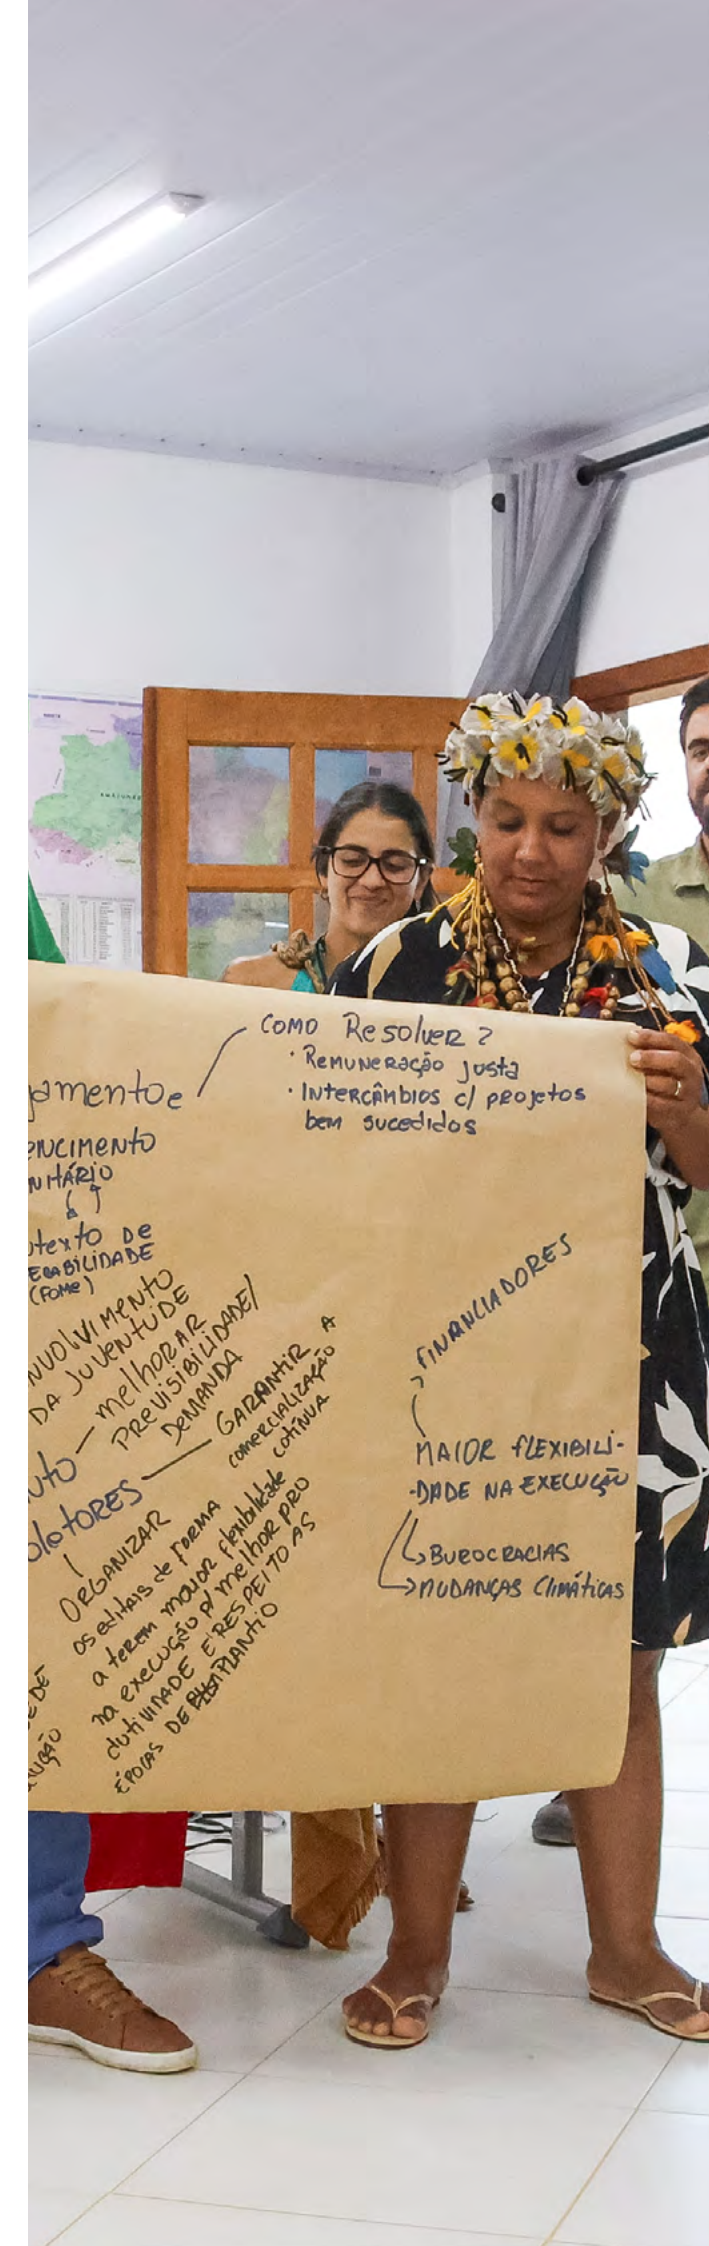 COMO Resolver?
· Remuneração justa
· Intercâmbios c/ projetos
bem sucedidos
jamento e
encimento
nitário
texto de
ebabilidade
(fome)
nvolvimento
da juventude
melhorar
previsibilidade/
demanda
uto
oletores
Garantir a
comercialização
cotínua
Organizar
os editais de forma
a terem maior flexibilidade
na execução p/ melhor pro
dutividade e respeito as
épocas de plantio
Financiadores
Maior flexibili-
-dade na execução
Burocracias
Mudanças climáticas